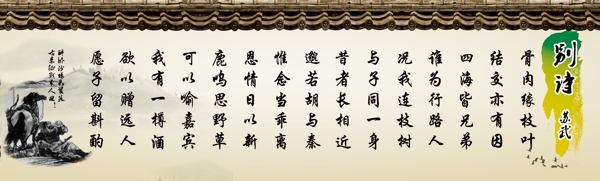 别诗
苏武
骨肉缘枝叶
结交亦有因
四海皆兄弟
谁为行路人
况我连枝树
与子同一身
昔者长相近
邈若胡与秦
惟念当乖离
恩情日以新
鹿鸣思野草
可以喻嘉宾
我有一樽酒
欲以赠远人
愿子留斟酌
醉卧沙场君莫笑
古来征战几人回